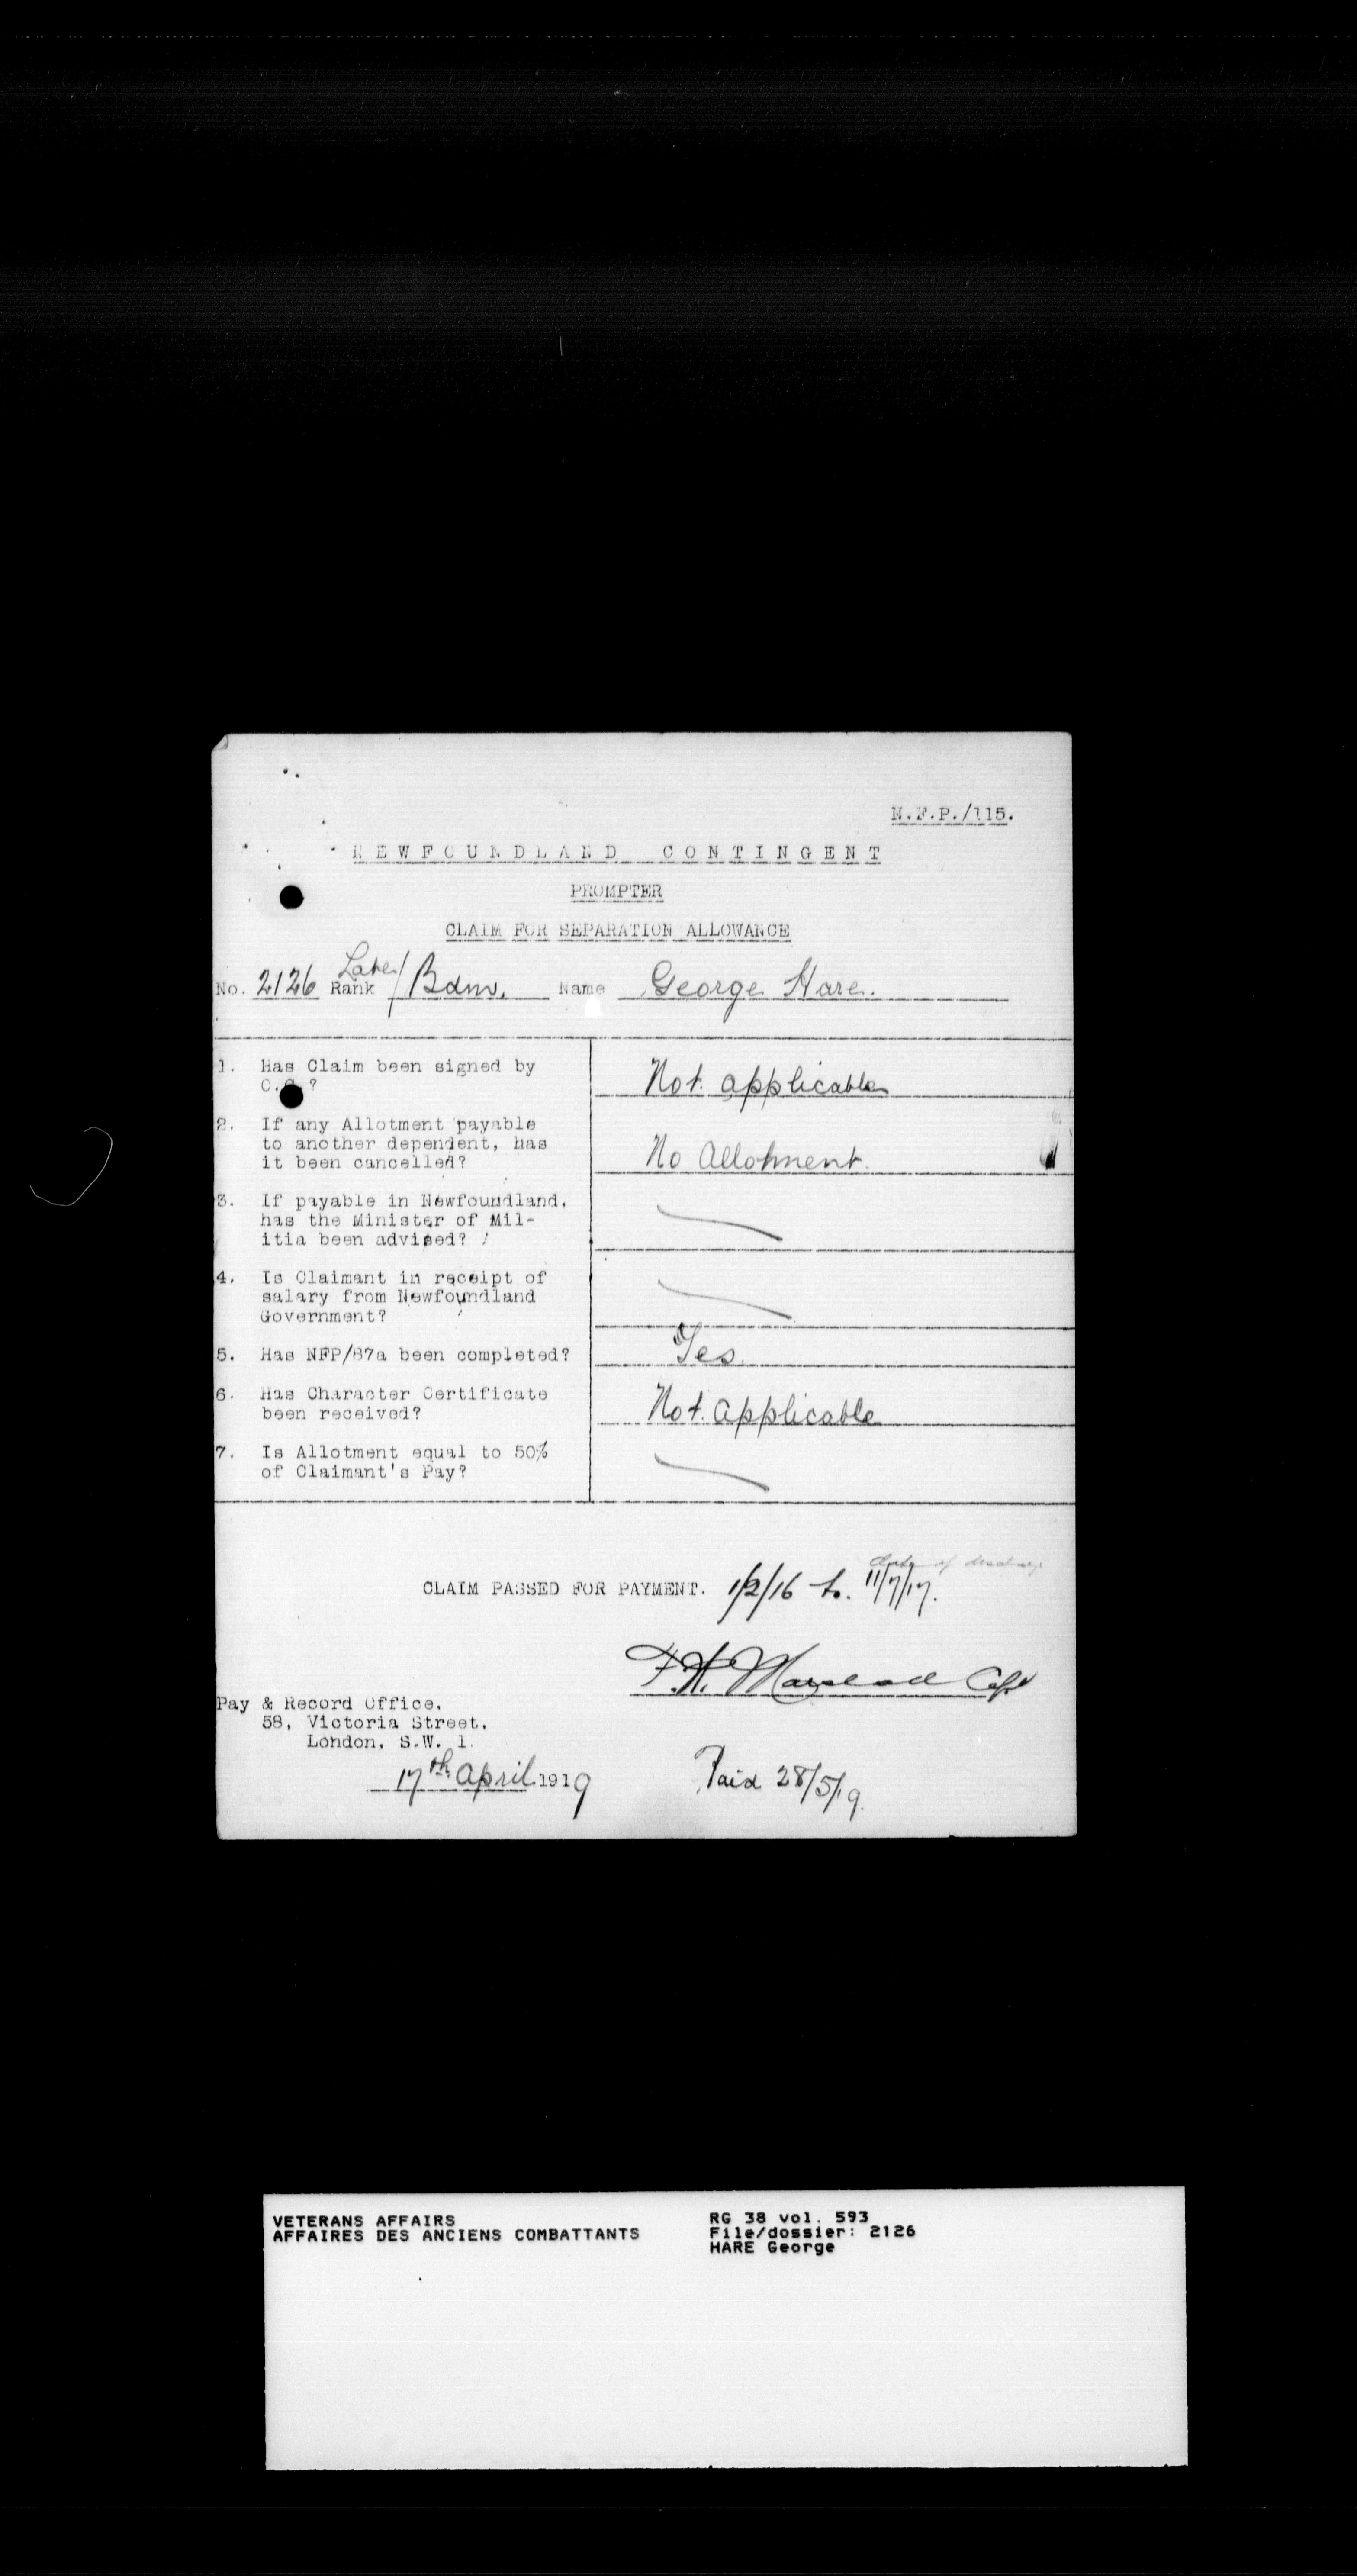 N.F.P./115.
NEWFOUNDLAND CONTINGENT
PROMPTER
CLAIM FOR SEPARATION ALLOWANCE
No. 2126 Rank Late/Bdm. Name George Hare.
1. Has Claim been signed by
C.O.? Not applicable
2. If any Allotment payable
to another dependent, has
it been cancelled? No Allotment.
3. If payable in Newfoundland,
has the Minister of Mil-
itia been advised?
4. Is Claimant in receipt of
salary from Newfoundland
Government?
5. Has NFP/87a been completed? Yes
6. Has Character Certificate
been received? Not. applicable
7. Is Allotment equal to 50%
of Claimant's Pay?
date of discharge
CLAIM PASSED FOR PAYMENT. 1/2/16 to. 11/7/17.
F.H. Marshall Capt
Pay & Record Office,
58, Victoria Street,
London, S.W. 1.
17th April 1919
Paid 28/5/19.
VETERANS AFFAIRS
AFFAIRES DES ANCIENS COMBATTANTS
RG 38 vol. 593
File/dossier: 2126
HARE George